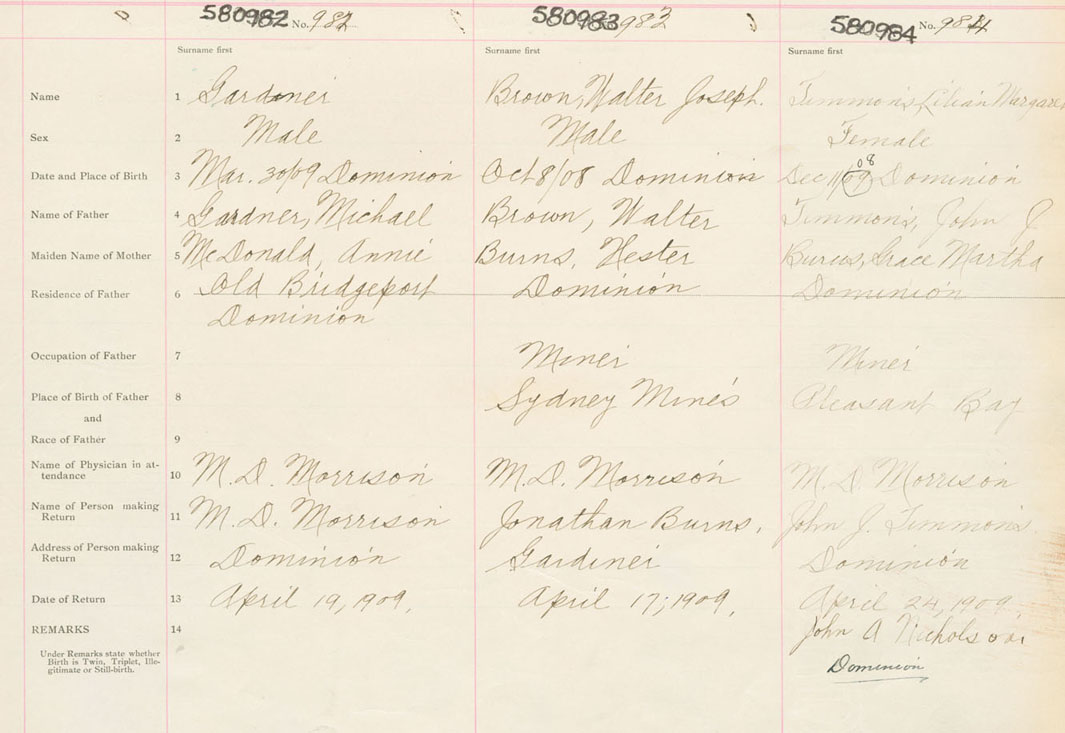 580982 No. 982
580983 983
580984 No. 984
Surname first
Surname first
Surname first
Name 1 Gardner Brown, Walter Joseph. Timmons, Lilian Margaret
Sex 2 Male Male Female
Date and Place of Birth 3 Mar. 30/09 Dominion Oct 8/08 Dominion Dec 11/09 08 Dominion
Name of Father 4 Gardner, Michael Brown, Walter Timmons, John J.
Maiden Name of Mother 5 McDonald, Annie Burns, Hester Burns, Grace Martha
Residence of Father 6 Old Bridgeport Dominion Dominion
Dominion
Occupation of Father 7 Miner Miner
Place of Birth of Father 8 Sydney Mines Pleasant Bay
and
Race of Father 9
Name of Physician in at-
tendance 10 M. D. Morrison M. D. Morrison M. D. Morrison
Name of Person making
Return 11 M. D. Morrison Jonathan Burns, John J. Timmons.
Address of Person making
Return 12 Dominion Gardiner Dominion
Date of Return 13 April 19, 1909. April 17, 1909. April 24, 1909
REMARKS 14 John A Nicholson
Under Remarks state whether
Birth is Twin, Triplet, Ille-
gitimate or Still-birth.
Dominion